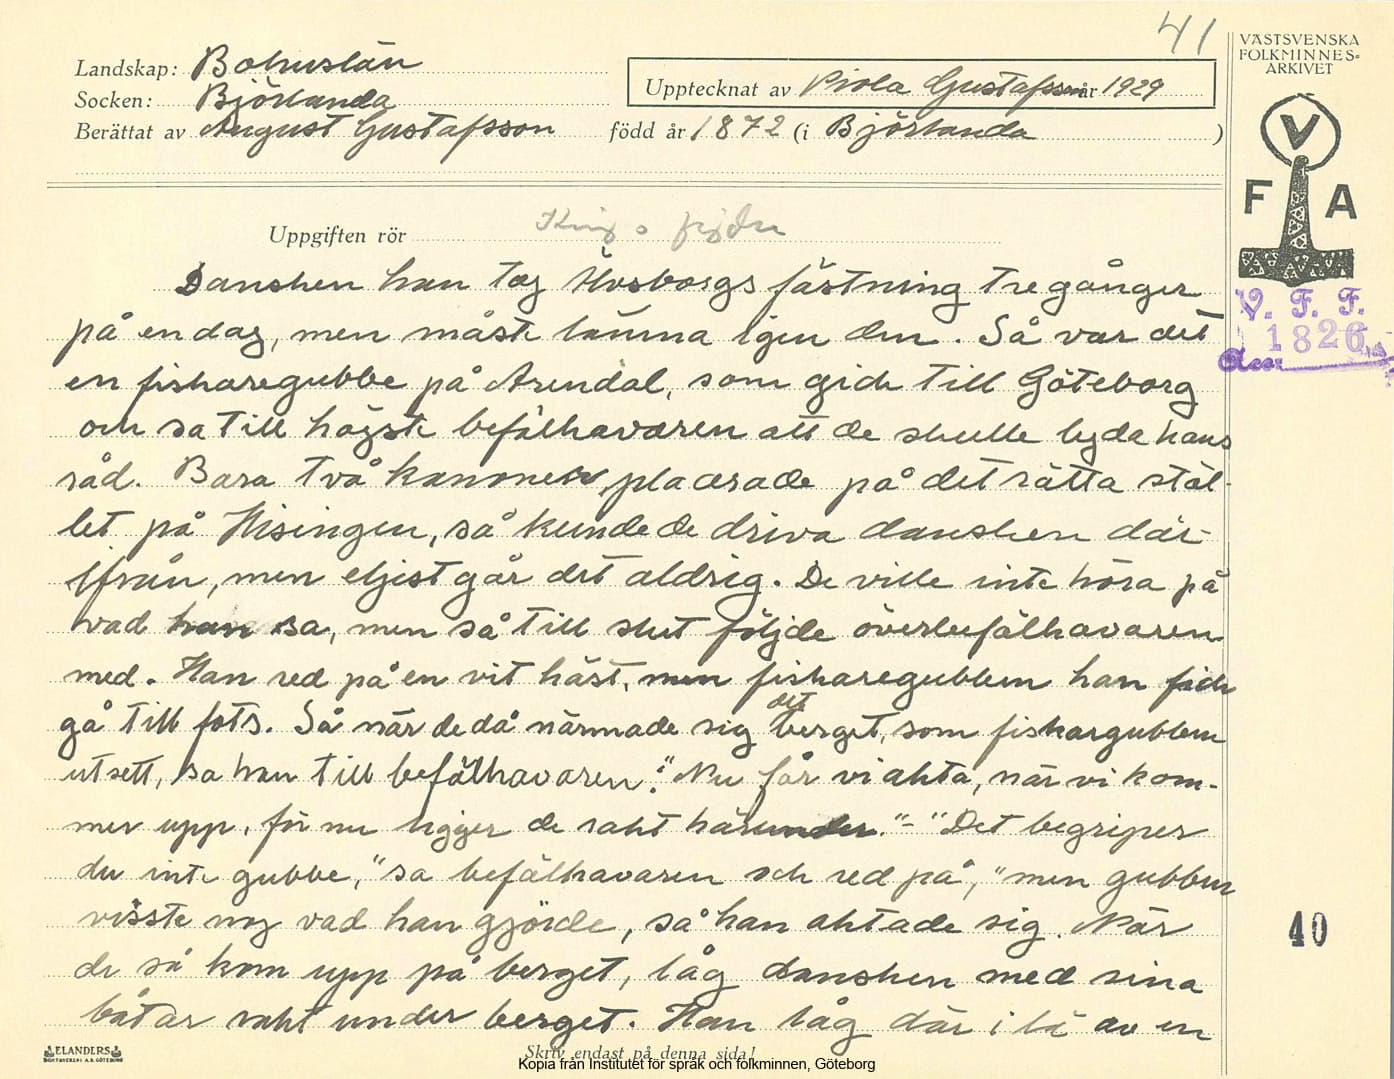 41
VÄSTSVENSKA
FOLKMINNES-
ARKIVET
Landskap: Bohuslän
Socken: Björlanda
Upptecknat av Viola Gustafsson år 1929
Berättat av August Gustafsson född år 1872 (i Björlanda)
V
F A
Uppgiften rör Krig o fejder
Dansken han tog Älvsborgs fästning tre gånger
på en dag, men måste lämna igen den. Så var det
en fiskaregubbe på Arendal, som gick till Göteborg
och sa till högste befälhavaren att de skulle lyda hans
råd. Bara två kanoner, placerade på det rätta stäl-
let på Hisingen, så kunde de driva dansken där-
ifrån, men eljest går det aldrig. De ville inte höra på
vad han sa, men så till slut följde överbefälhavaren
med. Han red på en vit häst, men fiskaregubben han fick
gå till fots. Så när de då närmade sig det berget, som fiskargubben
utsett, sa han till befälhavaren: "Nu får vi akta, när vi kom-
mer upp, för nu ligger de rakt härunder." - "Det begriper
du inte gubbe," sa befälhavaren och red på, "men gubben
visste nog vad han gjorde, så han aktade sig. När
de så kom upp på berget, låg dansken med sina
båtar rakt under berget. Han låg där i lä av en
V. F. F.
1826
Acc:
40
ELANDERS
Skriv endast på denna sida!
Kopia från Institutet för språk och folkminnen, Göteborg